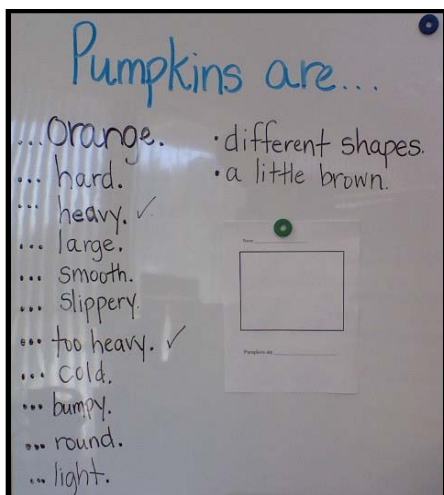 Pumpkins are...
...orange.
... hard.
... heavy. ✓
... large.
... smooth.
... slippery.
... too heavy. ✓
... cold.
... bumpy.
... round.
... light.
· different shapes.
· a little brown.
Name
Pumpkins are